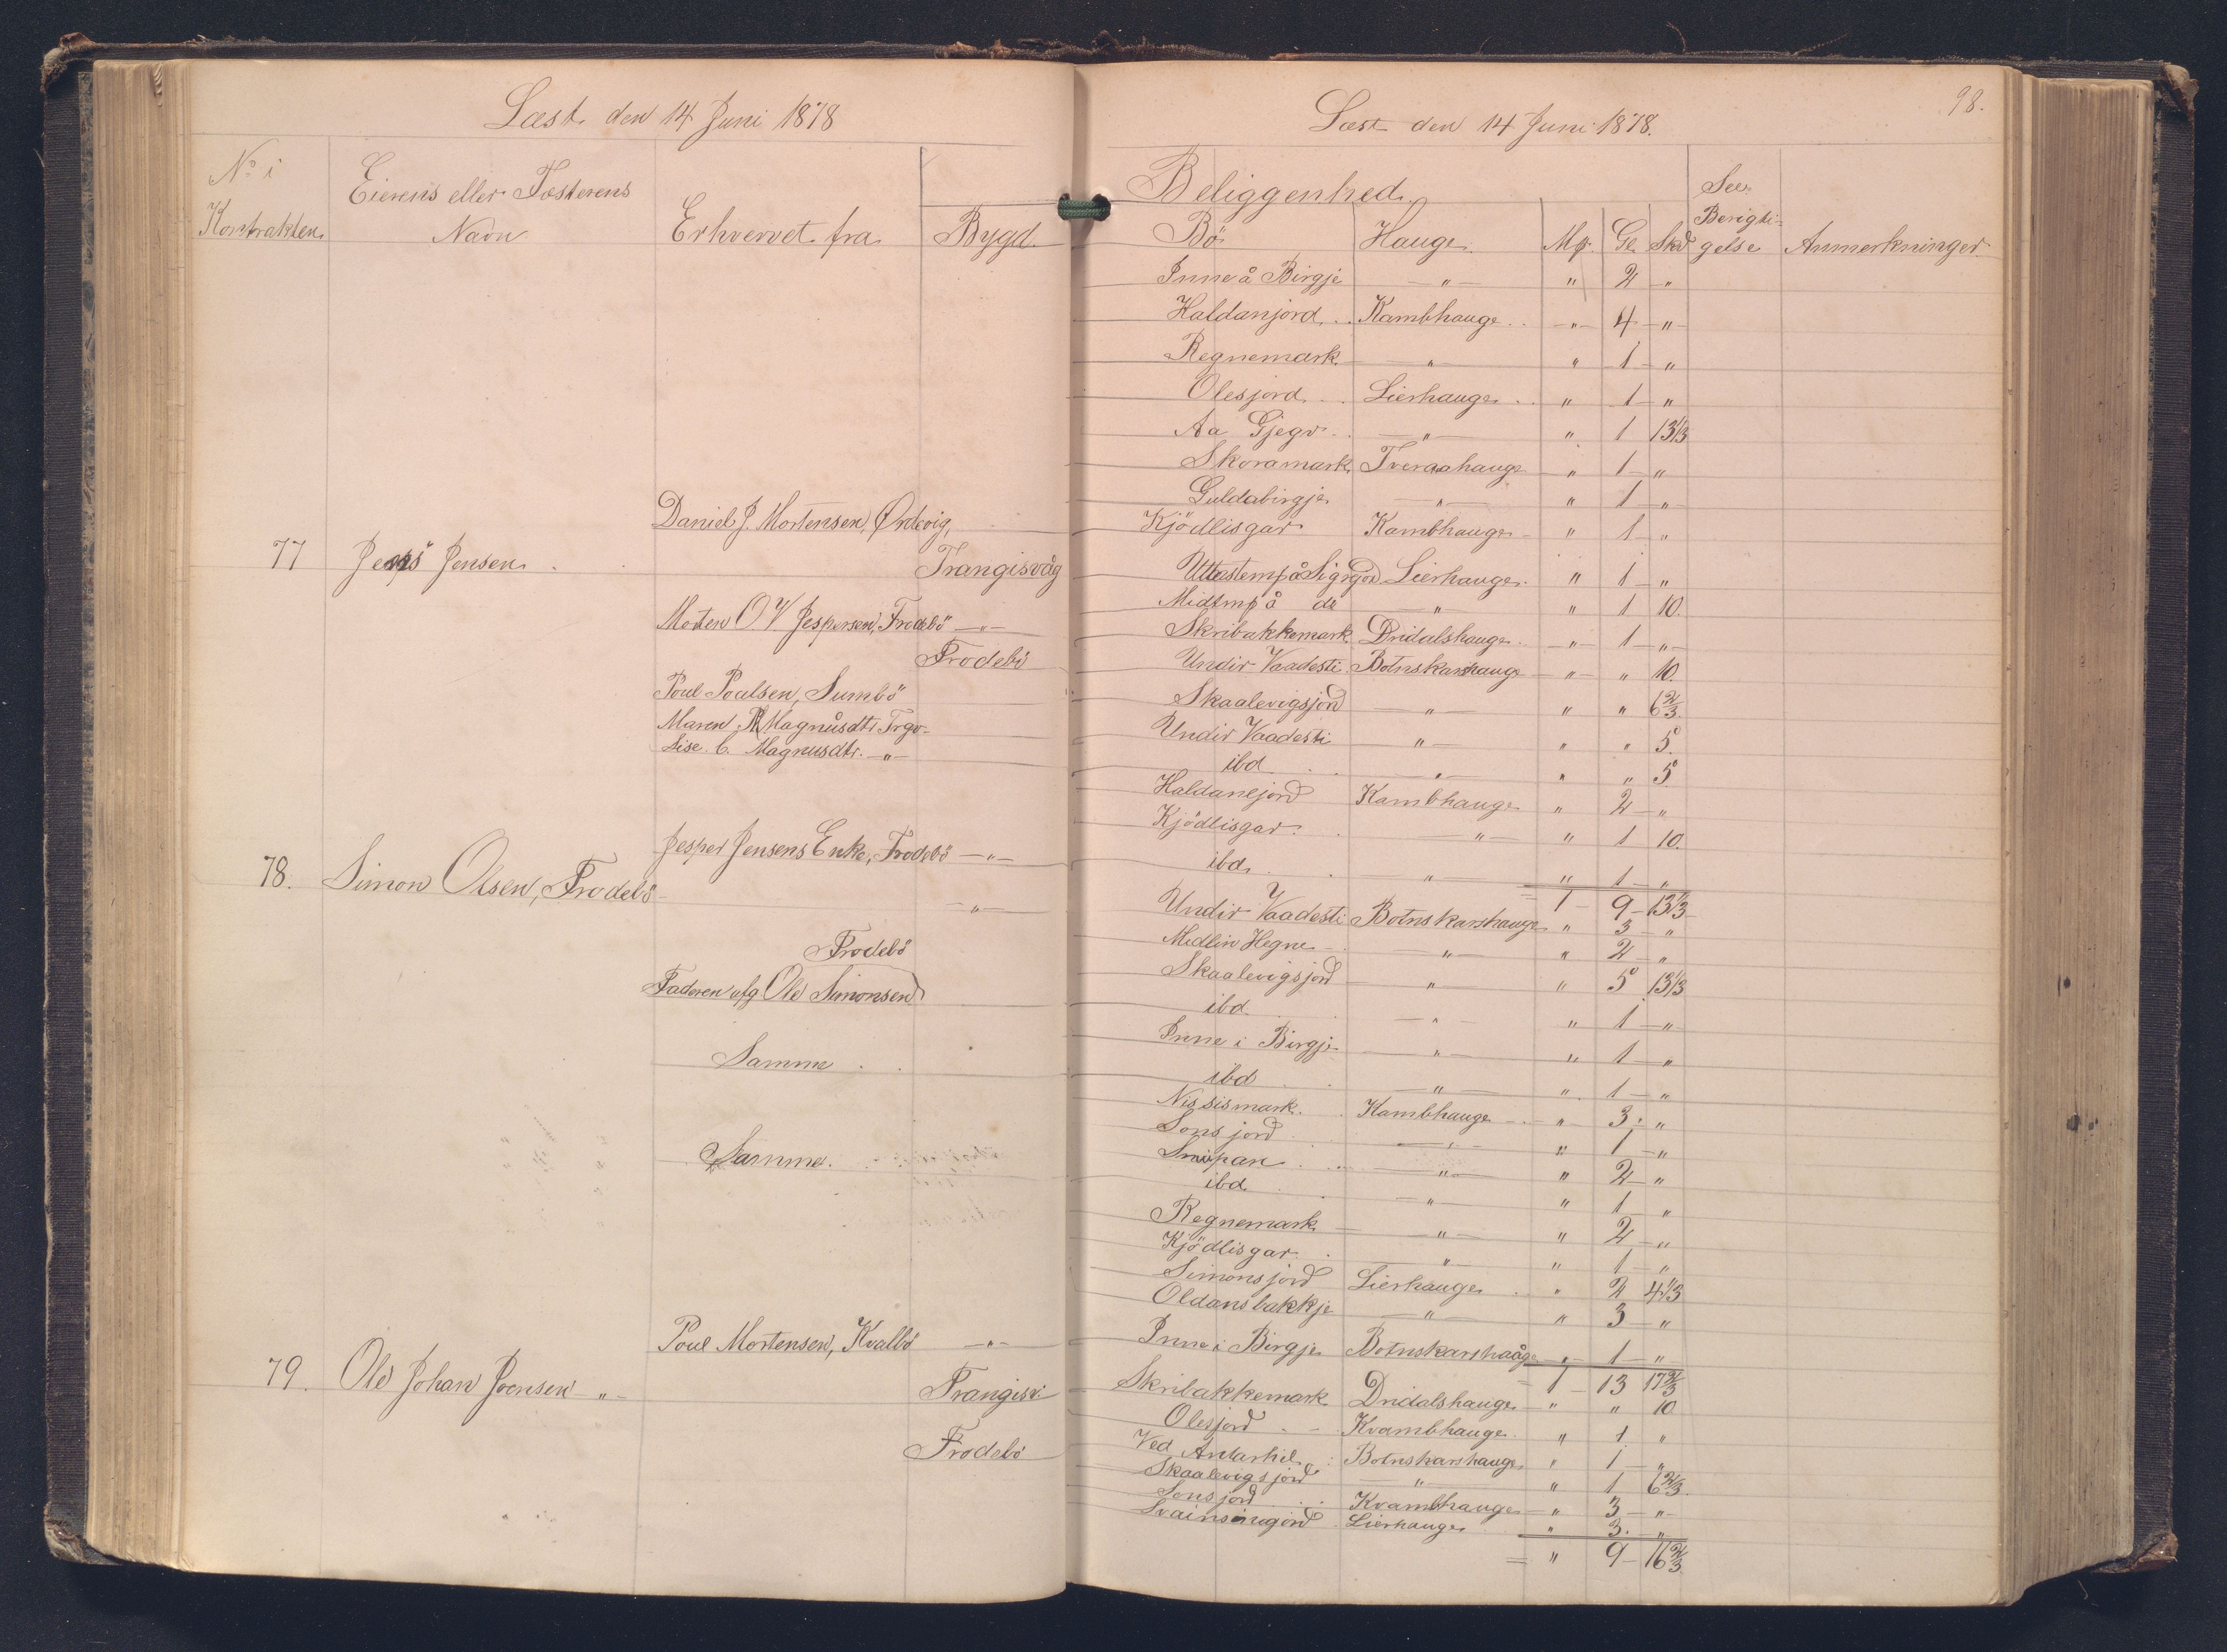 Læst den 14 Juni 1878
No i Kontrakten
Eierens eller Fæsterens Navn
Erhvervet fra
Bygd
Daniel J. Mortensen, Ördevig,
77 Jens Jensen
Trangisvåg
Morten O. V. Jespersen, Frodebö — " —
Frodebö
Poul Poulsen, Sumbö
Maren M Magnusdtr Trgv.
Lise C. Magnusdtr. — " —
Jesper Jensens Enke, Frodebö — " —
78. Simon Olsen, Frodebö
— " —
Frodebö
Faderen afg Ole Simonsen
Samme
Samme.
Poul Mortensen, Kvalbö — " —
79. Ole Johan Joensen — " —
Trangisv.
Frodebö
98.
Læst den 14 Juni 1878.
Beliggenhed.
Bö Hauge. Mk. Gl. Skd See Berigtigelse Anmerkninger.
Inne å Birgje — " — " 2 "
Haldanjord Kambhauge " 4 "
Regnemark " " 1 "
Olesjord Lierhauge " 1 "
Aa Gjegv " " 1 13 1/3
Skoramark Tveraahauge " 1 "
Guldabirgje " " 1 "
Kjödlisgar Kambhauge " 1 "
Lierhauge " 1 "
Midtmp å do " " 1 10.
Skribakkemark Dridalshauge " 1 "
Undir Vaadesti Botnskarshauge " " 10.
Skaalevigsjord " " " 6 2/3.
Undir Vaadesti " " " 5.
ibd " " " 5
Haldanejord Kambhauge " 2 "
Kjödlisgar " " 1 10.
ibd. " " 1 "
= 1 9 13 1/3
Undir Vaadesti Botnskarshauge " 3 "
Midlin Hegne " " 2 "
Skaalevigsjord " " 5 13 1/3
ibd. " " 1 "
Inne i Birgje " " 1 "
ibd " " 1 "
Nissismark. Kambhauge " 3 "
Sonsjord " " 1 "
Snupan " " 2 "
ibd. " " 1 "
Regnemark " " 2 "
Kjödlisgar " " 1 "
Simonsjord Lierhauge " 2 4 1/3
Oldansbakkje " " 3 "
Inne i Birgje Botnskarshaåge " 1 "
= 1 13 17 2/3
Skribakkemark Dridalshauge " " 10
Olesjord Kvambhauge " 1 "
Ved Antarhil Botnskarshauge " 1 "
Skaalevigsjord " " 1 6 2/3
Sonsjord Kvambhauge " 3 "
Lierhauge " 3. "
= " 9 16 2/3